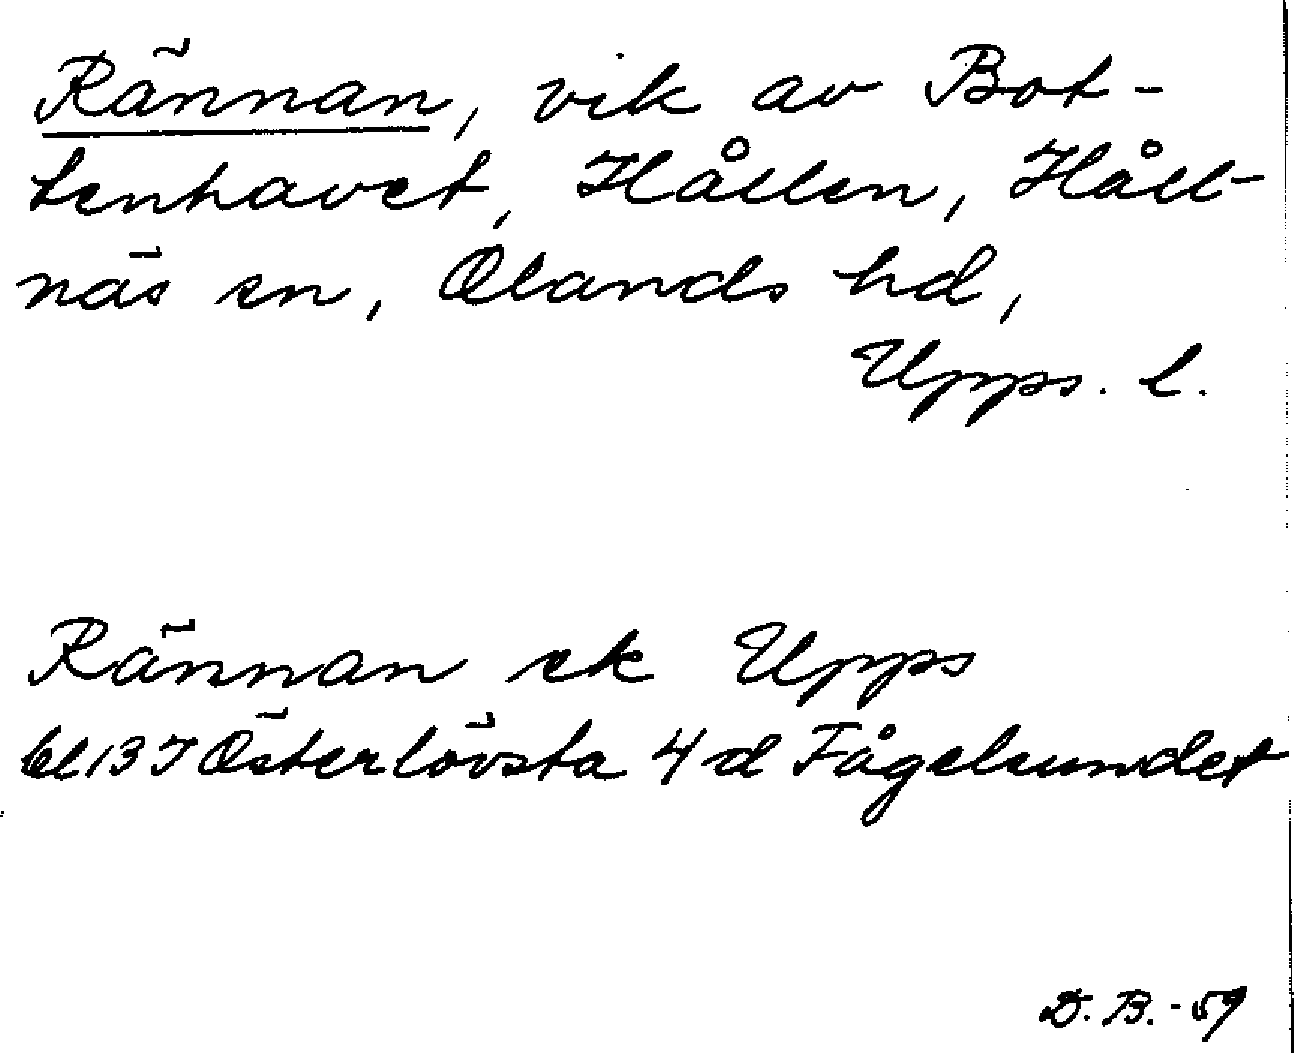 Rännan, vik av Bot-
tenhavet, Hållen, Håll-
näs sn, Olands hd,
Upps. l.
Rännan ek Upps
bl 13 I Österlövsta 4 d Fågelsundet
D. B. - 59